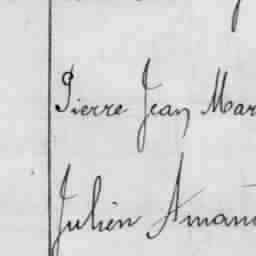 Pierre Jean Mar
Julien Amand